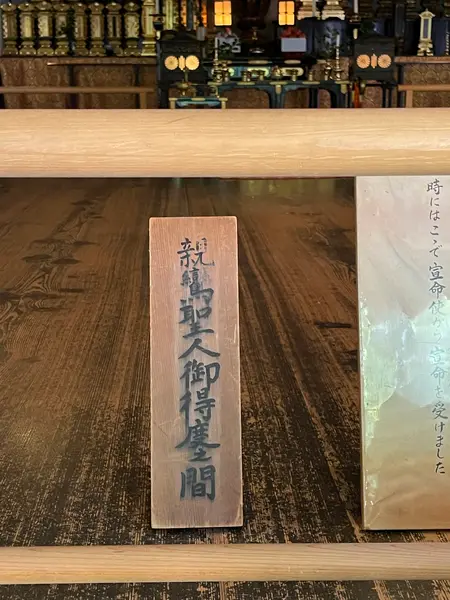 時にはここで宣命使から宣命を受けました
親鸞聖人御得度之間